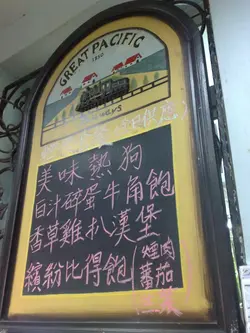 GREAT PACIFIC
美味熱狗
白汁碎蛋牛角飽
香草雞扒漢堡
繽紛比得飽(煙肉
蕃茄